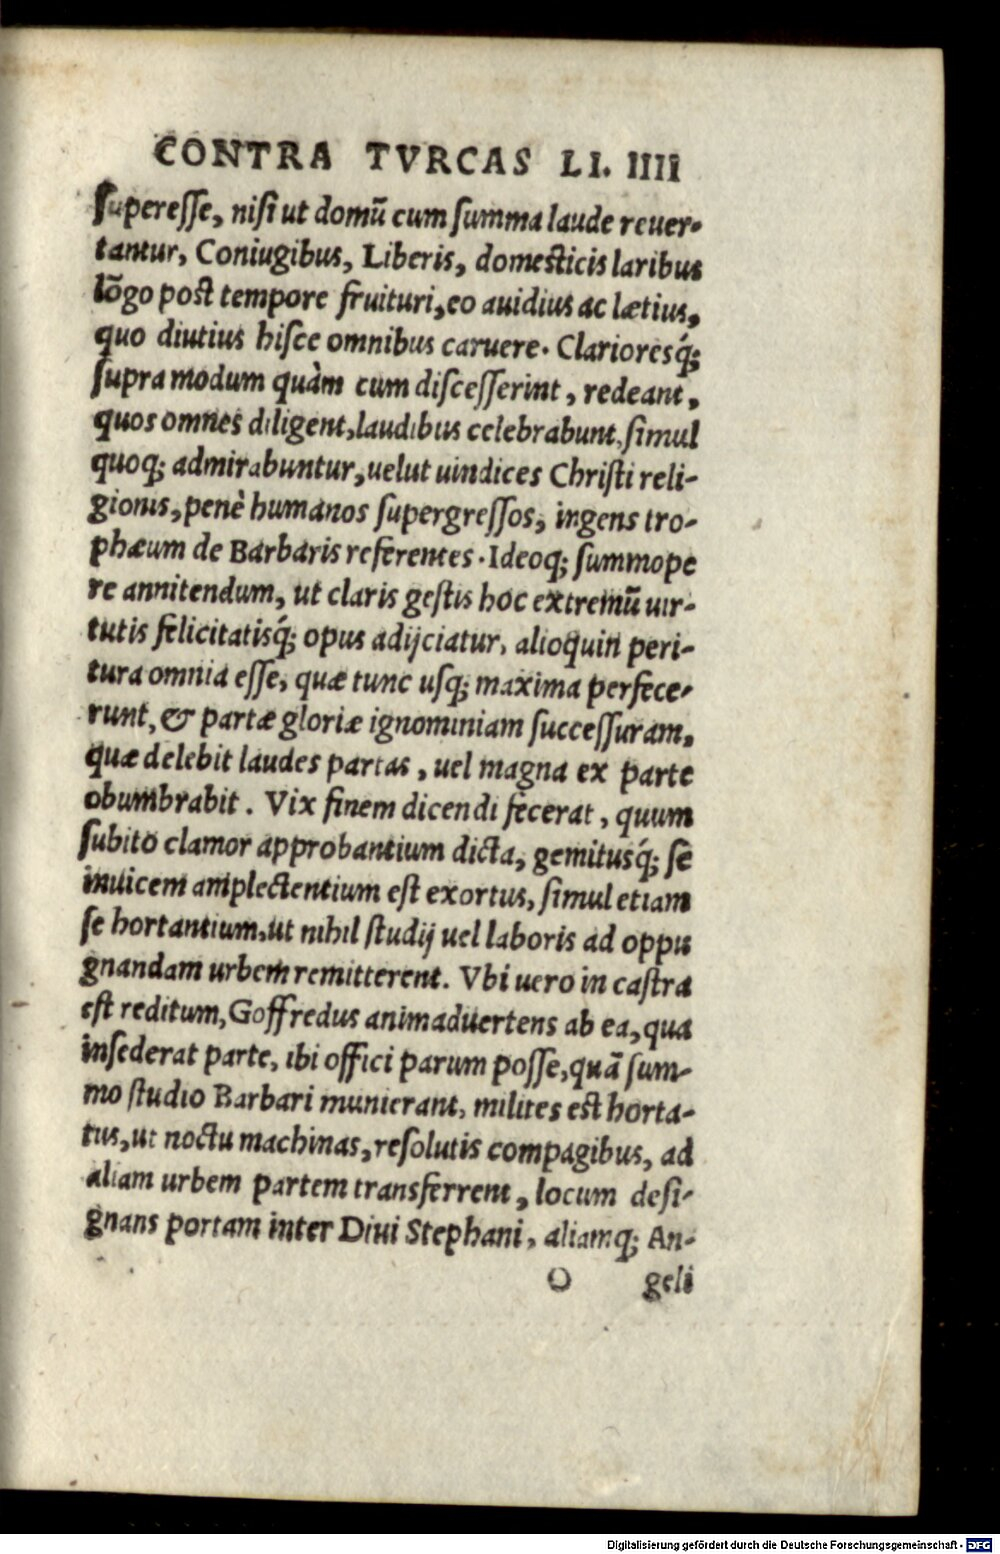 CONTRA TVRCAS LI. IIII
superesse, nisi ut domū cum summa laude reuer-
tantur, Coniugibus, Liberis, domesticis laribus
lōgo post tempore fruituri, eo auidius ac lætius,
quo diutius hisce omnibus caruere. Clarioresq́;
supra modum quàm cum discesserint, redeant,
quos omnes diligent, laudibus celebrabunt, simul
quoq; admirabuntur, uelut uindices Christi reli-
gionis, penè humanos supergressos, ingens tro-
phæum de Barbaris referentes. Ideoq; summope
re annitendum, ut claris gestis hoc extremū uir-
tutis felicitatisq́; opus adijciatur, alioquin peri-
tura omnia esse, quæ tunc usq; maxima perfece-
runt, & partæ gloriæ ignominiam successuram,
quæ delebit laudes partas, uel magna ex parte
obumbrabit. Vix finem dicendi fecerat, quum
subito clamor approbantium dicta, gemitusq́; se
inuicem amplectentium est exortus, simul etiam
se hortantium, ut nihil studij uel laboris ad oppu
gnandam urbem remitterent. Vbi uero in castra
est reditum, Goffredus animaduertens ab ea, qua
insederat parte, ibi offici parum posse, quā sum-
mo studio Barbari munierant, milites est horta-
tus, ut noctu machinas, resolutis compagibus, ad
aliam urbem partem transferrent, locum desi-
gnans portam inter Diui Stephani, aliamq; An-
O geli
Digitalisierung gefördert durch die Deutsche Forschungsgemeinschaft - DFG